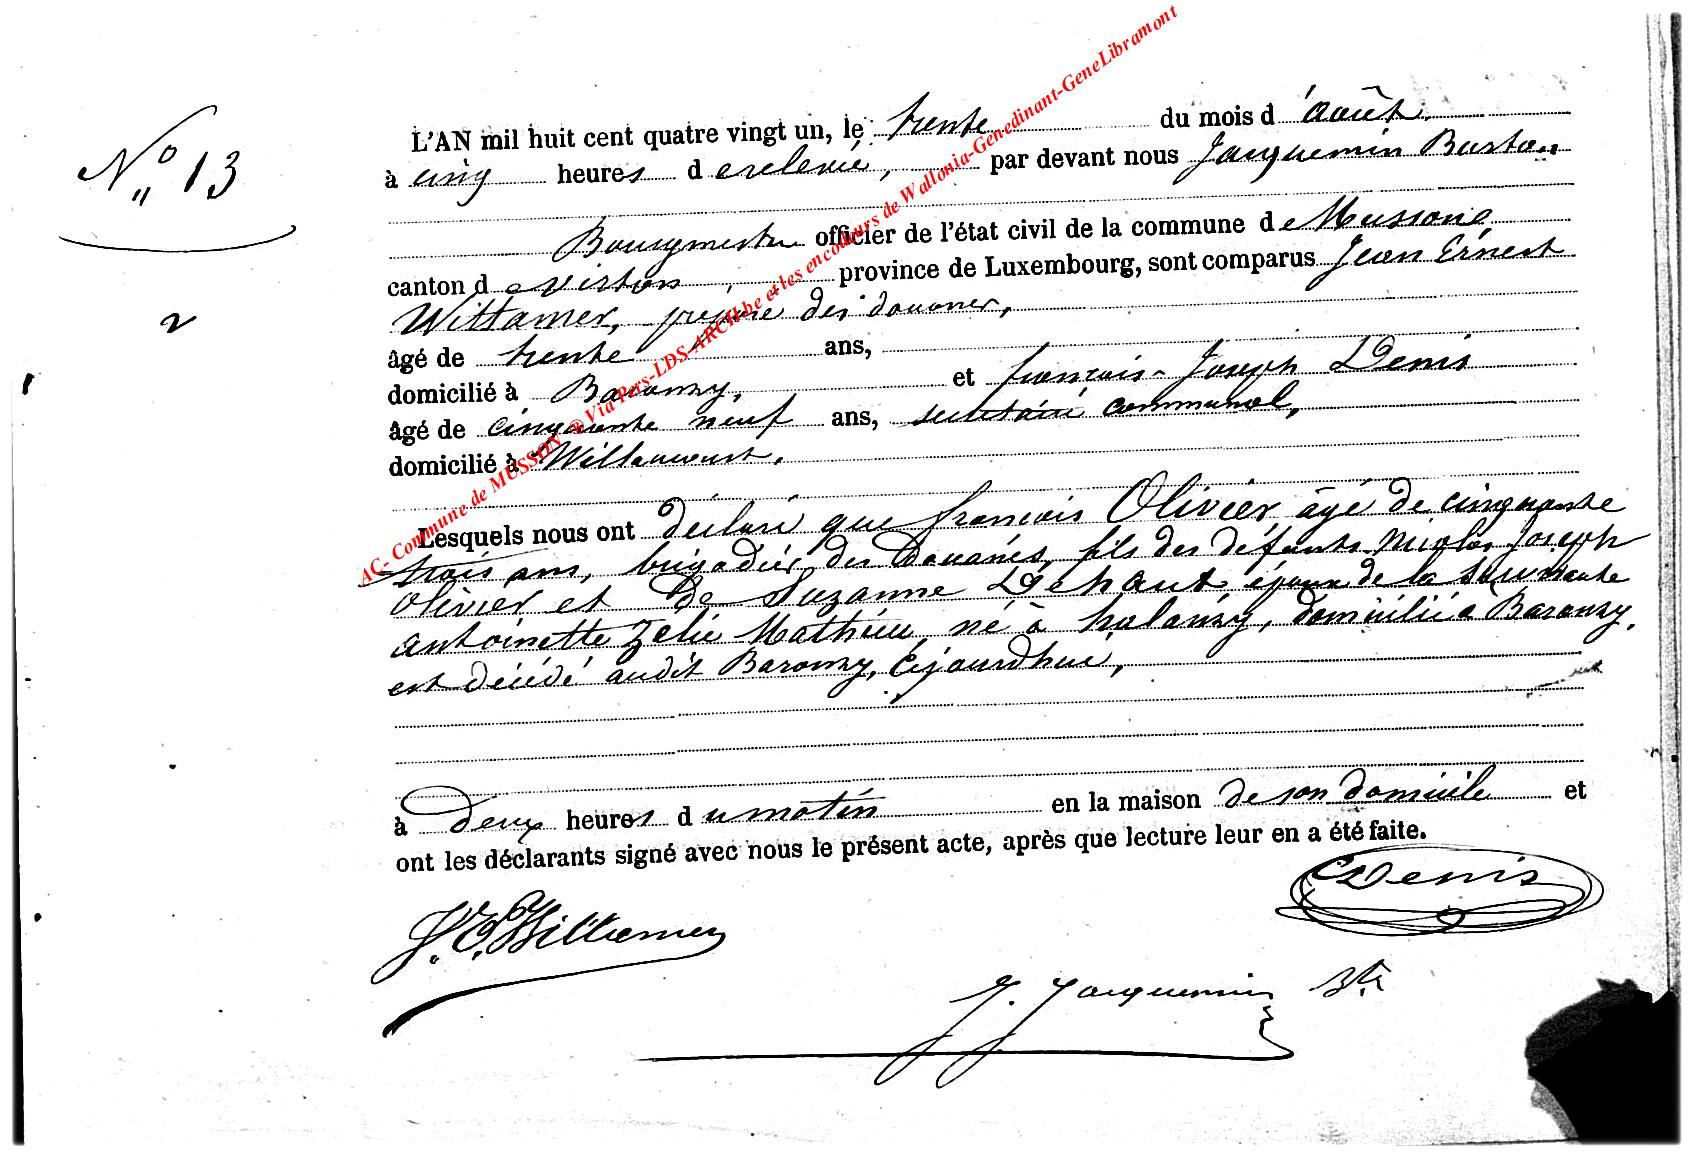 N° 13
2
L'AN mil huit cent quatre vingt un, le trente du mois d'août
à cinq heures de relevée, par devant nous Jacquemin
Bourgmestre officier de l'état civil de la commune de Musson
canton de Virton, province de Luxembourg, sont comparus Jean Ernest
Wittamer, préposé des douanes,
âgé de trente ans,
domicilié à Baranzy, et françois-Joseph Denis
âgé de cinquante neuf ans, secrétaire communal,
domicilié à Willancourt.
Lesquels nous ont déclaré que françois Olivier âgé de cinquante
trois ans, brigadier des Douanes, fils des défunts Nicolas Joseph
Olivier et de Suzanne Dehaut, époux de la survivante
Antoinette Zelie Mathieu, né à halanzy, domicilié à Baranzy,
est décédé audit Baranzy, cejourdhui,
à Deux heures du matin en la maison de son domicile et
ont les déclarants signé avec nous le présent acte, après que lecture leur en a été faite.
Denis
J. E. Wittamer
J. Jacquemin Bte
AC- Commune de MUSSON ® Via Pers-LDS-ARCH.be et les encodeurs de Wallonia-Genedinant-GeneLibramont